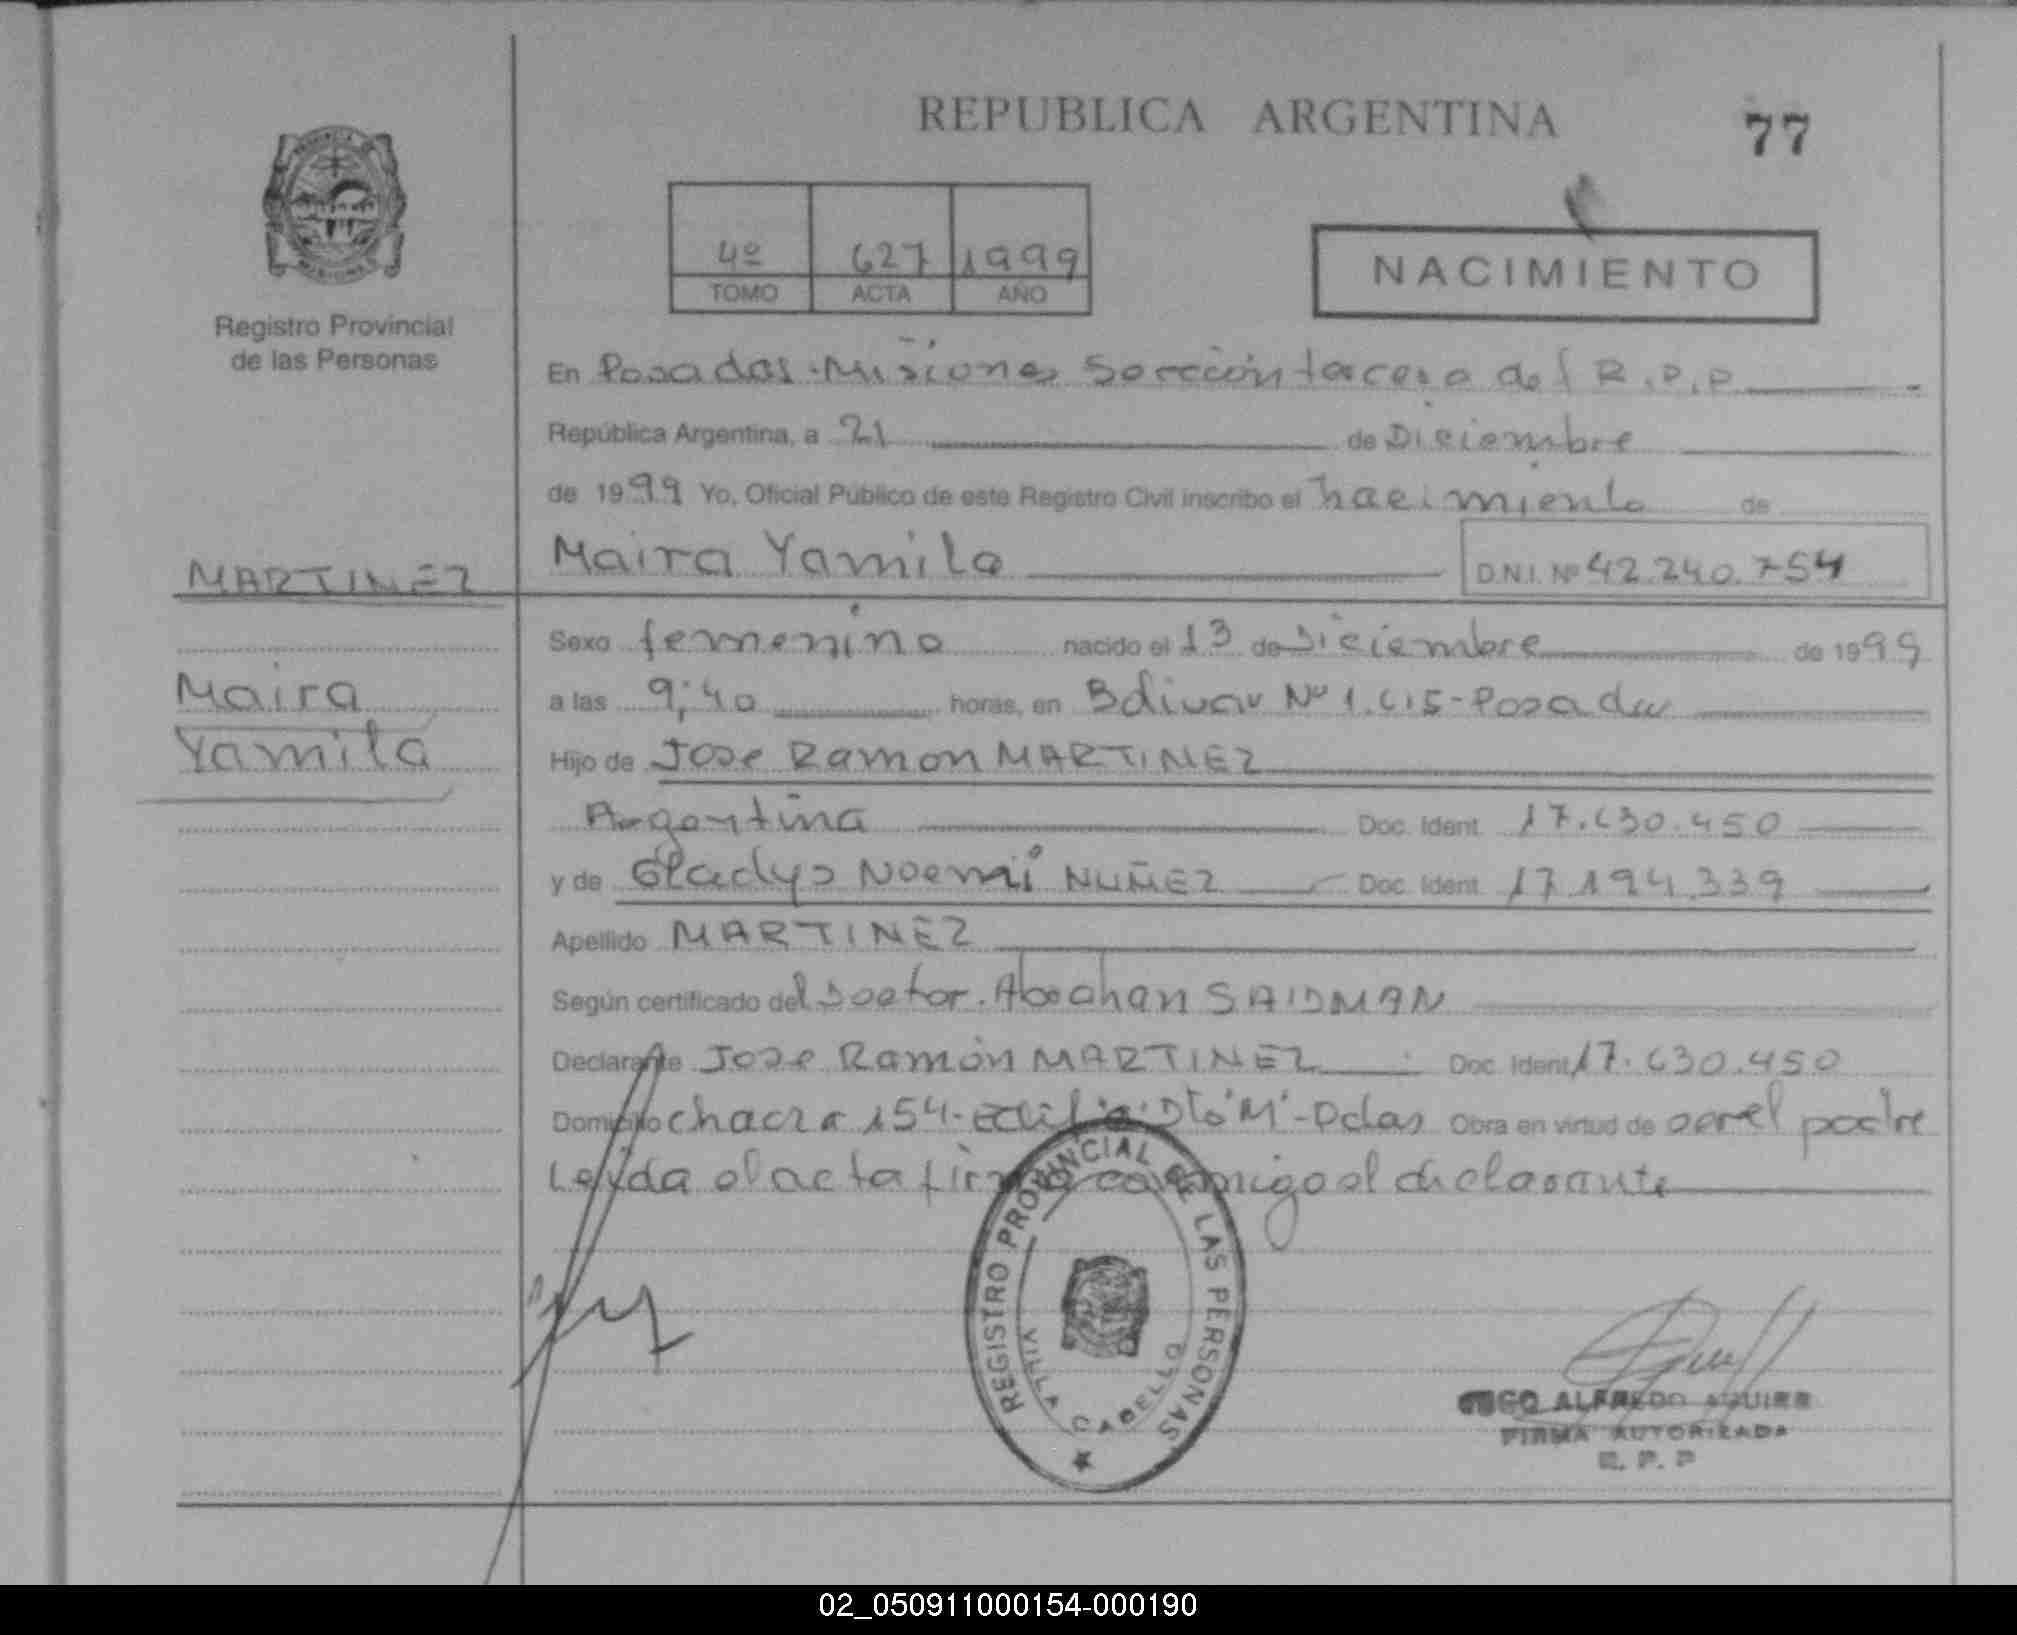 REPUBLICA ARGENTINA
77
4º 627 1999
TOMO ACTA AÑO
NACIMIENTO
Registro Provincial
de las Personas
En Posadas-Misiones Sección tercera del R.P.P
República Argentina, a 21 de Diciembre
de 1999 Yo, Oficial Público de este Registro Civil inscribo el nacimiento de
MARTINEZ
Maira Yamila
D.N.I. Nº 42.240.754
Sexo femenino nacido el 13 de Diciembre de 1999
Maira
Yamila
a las 9:40 horas, en Bolivar Nº 1.615-Posadas
Hijo de Jose Ramon MARTINEZ
Argentina Doc. Ident. 17.630.450
y de Gladys Noemi NUÑEZ Doc. Ident. 17.194.339
Apellido MARTINEZ
Según certificado del Doctor. Abrahan SAIDMAN
Declarante Jose Ramón MARTINEZ Doc. Ident 17.630.450
Domicilio chacra 154-Edificio Dto 'M'-Pdas Obra en virtud de ser el padre
Leida el acta firma conmigo el declarante
REGISTRO PROVINCIAL DE LAS PERSONAS
VILLA CABELLO
ALFREDO
FIRMA AUTORIZADA
R. P. P
02_050911000154-000190